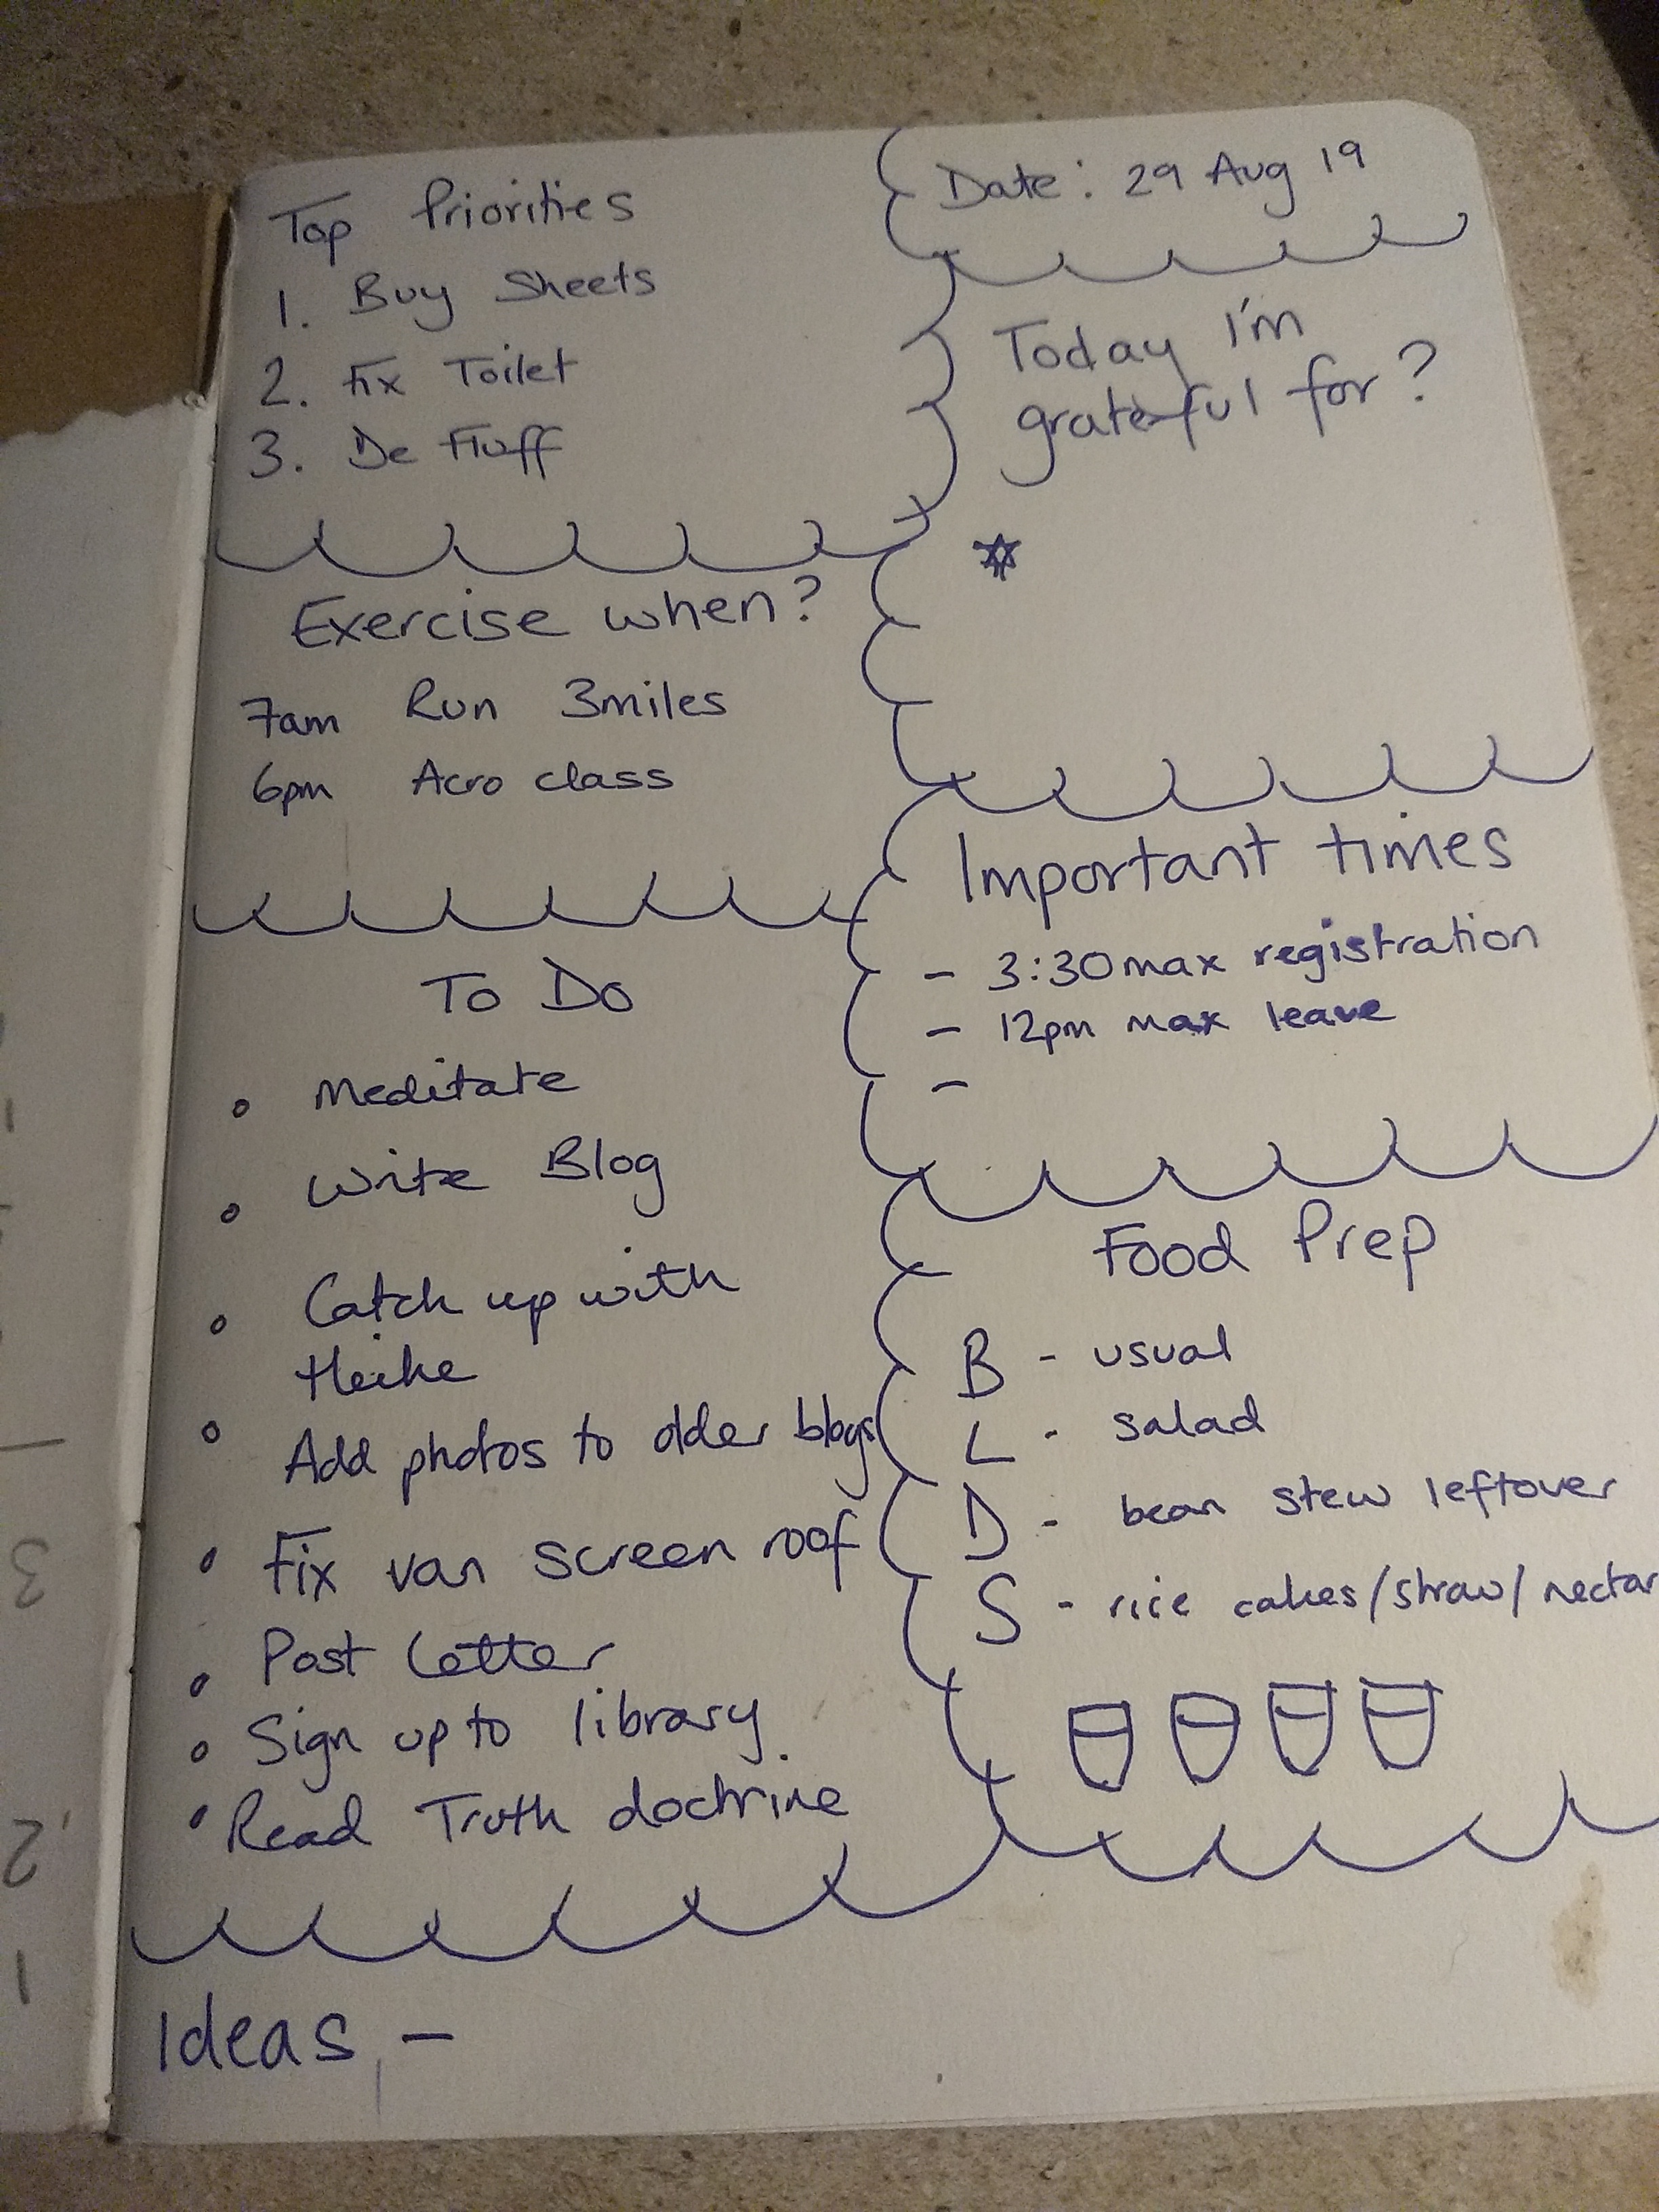 Top Priorities
1. Buy Sheets
2. Fix Toilet
3. De Fluff
Date: 29 Aug 19
Today I'm
grateful for?
Exercise when?
7am Run 3miles
6pm Acro class
Important times
- 3:30max registration
- 12pm max leave
-
To Do
Meditate
Write Blog
Catch up with
Heike
Add photos to older blogs
Fix van screen roof
Post Letter
Sign up to library.
Read Truth doctrine
Food Prep
B - usual
L - salad
D - bean stew leftover
S - rice cakes/straw/nectar
Ideas -
3
2.
1